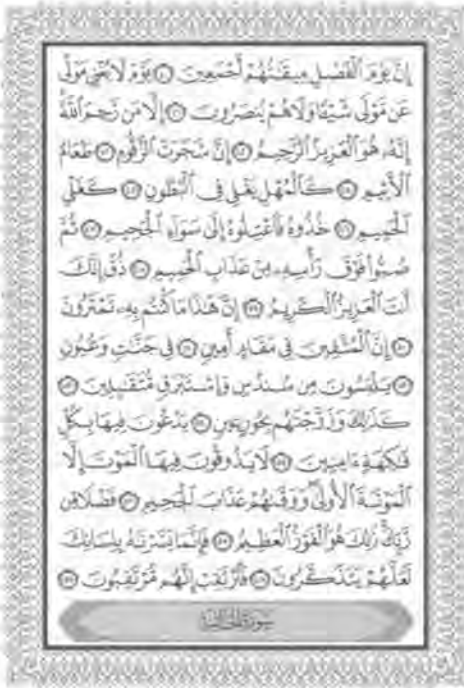 إِنَّ يَوْمَ ٱلْفَصْلِ مِيقَٰتُهُمْ أَجْمَعِينَ ۝٤٠ يَوْمَ لَا يُغْنِى مَوْلًى
عَن مَّوْلًى شَيْـًٔا وَلَا هُمْ يُنصَرُونَ ۝٤١ إِلَّا مَن رَّحِمَ ٱللَّهُ
إِنَّهُۥ هُوَ ٱلْعَزِيزُ ٱلرَّحِيمُ ۝٤٢ إِنَّ شَجَرَتَ ٱلزَّقُّومِ ۝٤٣ طَعَامُ
ٱلْأَثِيمِ ۝٤٤ كَٱلْمُهْلِ يَغْلِى فِى ٱلْبُطُونِ ۝٤٥ كَغَلْىِ
ٱلْحَمِيمِ ۝٤٦ خُذُوهُ فَٱعْتِلُوهُ إِلَىٰ سَوَآءِ ٱلْجَحِيمِ ۝٤٧ ثُمَّ
صُبُّوا۟ فَوْقَ رَأْسِهِۦ مِنْ عَذَابِ ٱلْحَمِيمِ ۝٤٨ ذُقْ إِنَّكَ
أَنتَ ٱلْعَزِيزُ ٱلْكَرِيمُ ۝٤٩ إِنَّ هَٰذَا مَا كُنتُم بِهِۦ تَمْتَرُونَ
۝٥٠ إِنَّ ٱلْمُتَّقِينَ فِى مَقَامٍ أَمِينٍ ۝٥١ فِى جَنَّٰتٍ وَعُيُونٍ
۝٥٢ يَلْبَسُونَ مِن سُندُسٍ وَإِسْتَبْرَقٍ مُّتَقَٰبِلِينَ ۝٥٣
كَذَٰلِكَ وَزَوَّجْنَٰهُم بِحُورٍ عِينٍ ۝٥٤ يَدْعُونَ فِيهَا بِكُلِّ
فَٰكِهَةٍ ءَامِنِينَ ۝٥٥ لَا يَذُوقُونَ فِيهَا ٱلْمَوْتَ إِلَّا
ٱلْمَوْتَةَ ٱلْأُولَىٰ وَوَقَىٰهُمْ عَذَابَ ٱلْجَحِيمِ ۝٥٦ فَضْلًا مِّن
رَّبِّكَ ذَٰلِكَ هُوَ ٱلْفَوْزُ ٱلْعَظِيمُ ۝٥٧ فَإِنَّمَا يَسَّرْنَٰهُ بِلِسَانِكَ
لَعَلَّهُمْ يَتَذَكَّرُونَ ۝٥٨ فَٱرْتَقِبْ إِنَّهُم مُّرْتَقِبُونَ ۝٥٩
سُورَةُ الجَاثِيَةِ